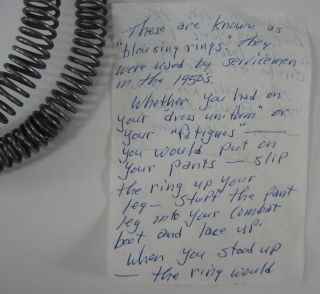 These are known as
"blousing rings" they
were used by servicemen
in the 1950's.
Whether you had on
your dress uniform" or
your "fatigues" —
you would put on
your pants — slip
the ring up your
leg — stuff the pant
leg into your combat
boot and lace up.
When you stood up
— the ring would